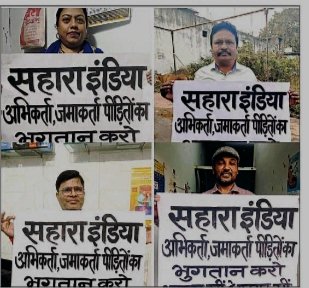 सहारा इंडिया
अभिकर्ता, जमाकर्ता पीड़ितों का
भुगतान करो
सहारा इंडिया
अभिकर्ता, जमाकर्ता पीड़ितों का
सहारा इंडिया
अभिकर्ता, जमाकर्ता पीड़ितों का
भुगतान करो
सहारा इंडिया
अभिकर्ता, जमाकर्ता पीड़ितों का
भुगतान करो